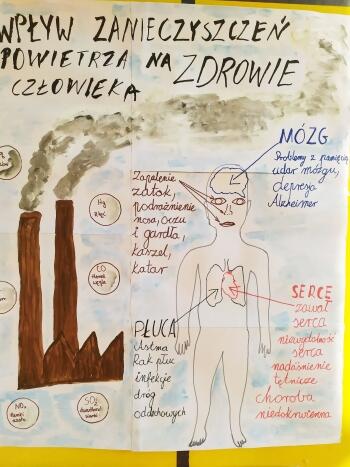 WPŁYW ZANIECZYSZCZEŃ
POWIETRZA NA ZDROWIE
CZŁOWIEKA
Hg
rtęć
CO
tlenek
węgla
NOₓ
tlenki
azotu
SO₂
dwutlenek
siarki
Zapalenie
zatok,
podrażnienie
nosa, oczu
i gardła,
kaszel,
katar
MÓZG
Problemy z pamięcią,
udar mózgu,
depresja
Alzheimer
PŁUCA
Astma
Rak płuc
infekcje
dróg
oddechowych
SERCE
zawał
serca
niewydolność
serca
nadciśnienie
tętnicze
choroba
niedokrwienna